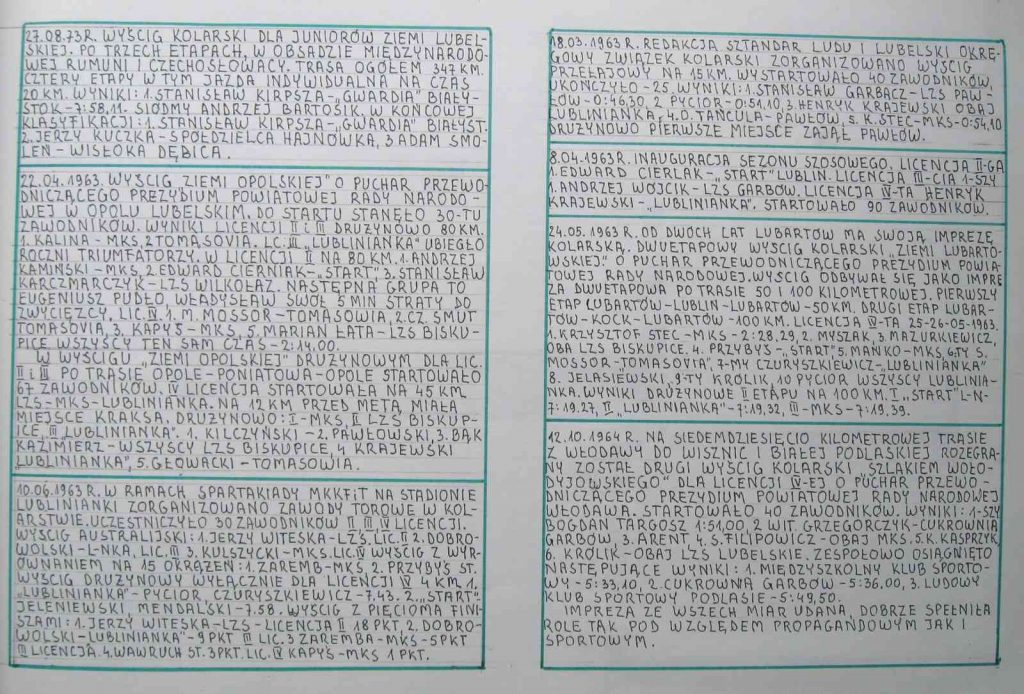 27.08.73R. WYŚCIG KOLARSKI DLA JUNIORÓW ZIEMI LUBEL-
SKIEJ. PO TRZECH ETAPACH, W OBSADZIE MIĘDZYNARODO-
WEJ RUMUNI I CZECHOSŁOWACY. TRASA OGÓŁEM 347 KM.
CZTERY ETAPY W TYM JAZDA INDYWIDUALNA NA CZAS
20 KM. WYNIKI: 1. STANISŁAW KIRPSZA-„GWARDIA" BIAŁY-
STOK-7:58,11. SIÓDMY ANDRZEJ BARTOSIK. W KOŃCOWEJ
KLASYFIKACJI: 1. STANISŁAW KIRPSZA-„GWARDIA" BIAŁYST.
2. JERZY KUCZKA-SPÓŁDZIELCA HAJNÓWKA, 3 ADAM SMO-
LEŃ-WISŁOKA DĘBICA.
22.04.1963. WYŚCIG „ZIEMI OPOLSKIEJ" O PUCHAR PRZEWO-
DNICZĄCEGO PREZYDIUM POWIATOWEJ RADY NARODO-
WEJ W OPOLU LUBELSKIM. DO STARTU STANĘŁO 30-TU
ZAWODNIKÓW. WYNIKI LICENCJI II i III DRUŻYNOWO 80 KM.
1. KALINA-MKS, 2 TOMASOVIA. LC. III „LUBLINIANKA" UBIEGŁO
ROCZNI TRIUMFATORZY. W LICENCJI II NA 80 KM. 1. ANDRZEJ
KAMIŃSKI-MKS, 2. EDWARD CIERNIAK-„START" 3. STANISŁAW
KARCZMARCZYK-LZS WILKOŁAZ. NASTĘPNA GRUPA TO
EUGENIUSZ PUDŁO, WŁADYSŁAW SWÓŁ 5 MIN STRATY DO
ZWYCIĘZCY, LIC. IV. 1. M. MOSSOR-TOMASOVIA, 2. CZ. SMUT
TOMASOVIA, 3. KAPYŚ-MKS, 5. MARIAN ŁATA-LZS BISKU-
PICE WSZYSCY TEN SAM CZAS-2:14,00.
W WYŚCIGU „ZIEMI OPOLSKIEJ" DRUŻYNOWYM DLA LIC.
II i III PO TRASIE OPOLE-PONIATOWA-OPOLE STARTOWAŁO
67 ZAWODNIKÓW. IV LICENCJA STARTOWAŁA NA 45 KM
LZS-MKS-LUBLINIANKA. NA 12 KM PRZED METĄ MIAŁA
MIEJSCE KRAKSA. DRUŻYNOWO: I-MKS, II LZS BISKUP-
ICE, III „LUBLINIANKA". 1. KILCZYŃSKI-2. PAWŁOWSKI, 3. BĄK
KAZIMIERZ-WSZYSCY LZS BISKUPICE, 4 KRAJEWSKI
„LUBLINIANKA", 5. GŁOWACKI-TOMASOVIA.
10.06.1963 R. W RAMACH SPARTAKIADY MKKFiT NA STADIONIE
LUBLINIANKI ZORGANIZOWANO ZAWODY TOROWE W KOL-
ARSTWIE. UCZESTNICZYŁO 30 ZAWODNIKÓW II III IV LICENCJI.
WYŚCIG AUSTRALIJSKI: 1. JERZY WITESKA-LZS. LIC. II 2. DOBRO-
WOLSKI-L-NKA, LIC. III 3. KULSZYCKI-MKS. LIC. IV WYŚCIG Z WYR-
ÓWNANIEM NA 15 OKRĄŻEŃ: 1. ZAREMB-MKS, 2. PRZYBYŚ ST.
WYŚCIG DRUŻYNOWY WYŁĄCZNIE DLA LICENCJI IV 4 KM 1.
„LUBLINIANKA"-PYCIOR CZURYSZKIEWICZ-7.43. 2. „START".
JELENIEWSKI, MENDALSKI-7.58. WYŚCIG Z PIĘCIOMA FINI-
SZAMI: 1. JERZY WITESKA-LZS-LICENCJA II 18 PKT, 2. DOBRO-
WOLSKI-LUBLINIANKA"-9 PKT III LIC. 3 ZAREMBA-MKS-5 PKT
III LICENCJA. 4. WAWRUCH ST. 3 PKT. LIC. IV KAPYŚ-MKS 1 PKT.
18.03.1963 R. REDAKCJA SZTANDAR LUDU I LUBELSKI OKRĘ-
GOWY ZWIĄZEK KOLARSKI ZORGANIZOWANO WYŚCIG
PRZEŁAJOWY NA 15 KM. WYSTARTOWAŁO 40 ZAWODNIKÓW,
UKOŃCZYŁO-25. WYNIKI: 1. STANISŁAW GARBACZ-LZS PAW-
ŁÓW-0:46,30, 2. PYCIOR-0:51,10, 3. HENRYK KRAJEWSKI OBAJ
LUBLINIANKA, 4. D. TANCULA-PAWŁÓW, 5. K. STEC-MKS-0:54,10
DRUŻYNOWO PIERWSZE MIEJSCE ZAJĄŁ PAWŁÓW.
8.04.1963R. INAUGURACJA SEZONU SZOSOWEGO. LICENCJA II-GA
1. EDWARD CIERLAK-„START" LUBLIN. LICENCJA III-CIA 1-SZY
1. ANDRZEJ WÓJCIK-LZS GARBÓW. LICENCJA IV-TA HENRYK
KRAJEWSKI-„LUBLINIANKA". STARTOWAŁO 90 ZAWODNIKÓW.
24.05.1963 R. OD DWÓCH LAT LUBARTÓW MA SWOJĄ IMPREZĘ
KOLARSKĄ. DWUETAPOWY WYŚCIG KOLARSKI „ZIEMI LUBARTO-
WSKIEJ." O PUCHAR PRZEWODNICZĄCEGO PREZYDIUM POWIA-
TOWEJ RADY NARODOWEJ. WYŚCIG ODBYWAŁ SIĘ JAKO IMPRE
ZA DWUETAPOWA PO TRASIE 50 I 100 KILOMETROWEJ. PIERWSZY
ETAP LUBARTÓW-LUBLIN-LUBARTÓW-50 KM. DRUGI ETAP LUBAR-
TÓW-KOCK-LUBARTÓW-100 KM. LICENCJA IV-TA 25-26-05-1963.
1. KRZYSZTOF STEC-MKS-2:28,29, 2. MYSZAK, 3. MAZURKIEWICZ,
OBA LZS BISKUPICE. 4. PRZYBYŚ-„START" 5. MAŃKO-MKS, 6.TY S.
MOSSOR-TOMASOVIA", 7-MY CZURYSZKIEWICZ-„LUBLINIANKA"
8. JELASIEWSKI, 9-TY KRÓLIK, 10 PYCIOR WSZYSCY LUBLINIA-
NKA. WYNIKI DRUŻYNOWE II ETAPU NA 100 KM. I „START" L-N-
7:19.27, II „LUBLINIANKA"-7:19,32, III-MKS-7:19,39.
12.10.1964 R. NA SIEDEMDZIESIĘCIO KILOMETROWEJ TRASIE
Z WŁODAWY DO WISZNIC I BIAŁEJ PODLASKIEJ ROZEGRA-
NY ZOSTAŁ DRUGI WYŚCIG KOLARSKI „SZLAKIEM WOŁO-
DYJOWSKIEGO" DLA LICENCJI IV-EJ O PUCHAR PRZEWO-
DNICZĄCEGO PREZYDIUM POWIATOWEJ RADY NARODOWEJ
WŁODAWA. STARTOWAŁO 40 ZAWODNIKÓW. WYNIKI: 1-SZY
BOGDAN TARGOSZ 1:51,00, 2 WIT. GRZEGORCZYK-CUKROWNIA
GARBÓW, 3. ARENT, 4. S. FILIPOWICZ-OBAJ MKS. 5. K. KASPRZYK,
6. KRÓLIK-OBAJ LZS LUBELSKIE. ZESPOŁOWO OSIĄGNIĘTO
NASTĘPUJĄCE WYNIKI: 1. MIĘDZYSZKOLNY KLUB SPORTO-
WY-5:33,10, 2. CUKROWNA GARBÓW-5:36,00, 3. LUDOWY
KLUB SPORTOWY PODLASIE-5:49,50.
IMPREZA ZE WSZECH MIAR UDANA, DOBRZE SPEŁNIŁA
ROLĘ TAK POD WZGLĘDEM PROPAGANDOWYM JAK I
SPORTOWYM.